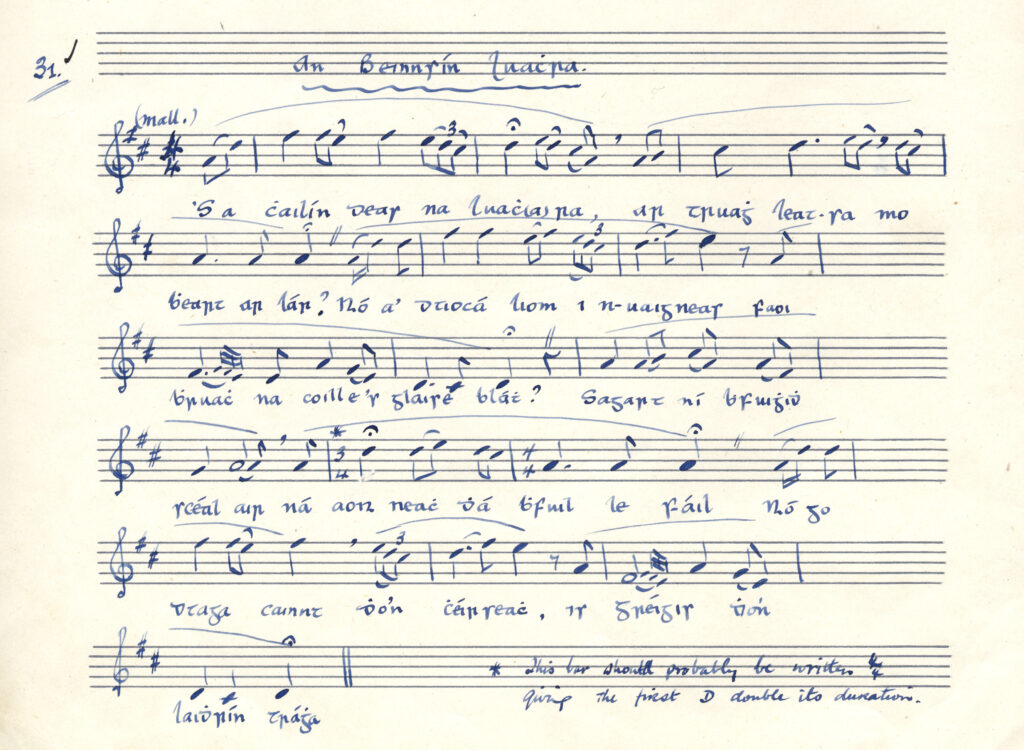 31.
An Beinnsín Luaċra.
(mall.)
'S a ċailín deas na luaċ(a)ra, ar truaġ leat-sa mo
ḃeart ar lár? Nó a' dtiocá liom i n-uaigneas faoi
bruaċ na coille 's glaise bláṫ? Sagart ní ḃfuiġiḋ
scéal air ná aon neaċ ḋá ḃfuil le fáil Nó go
dtaga cainnt ḋo'n ċéirseaċ, is gréigis ḋo'n
laiḋrín tráġa
* This bar should probably be written 4/4
giving the first D double its duration.